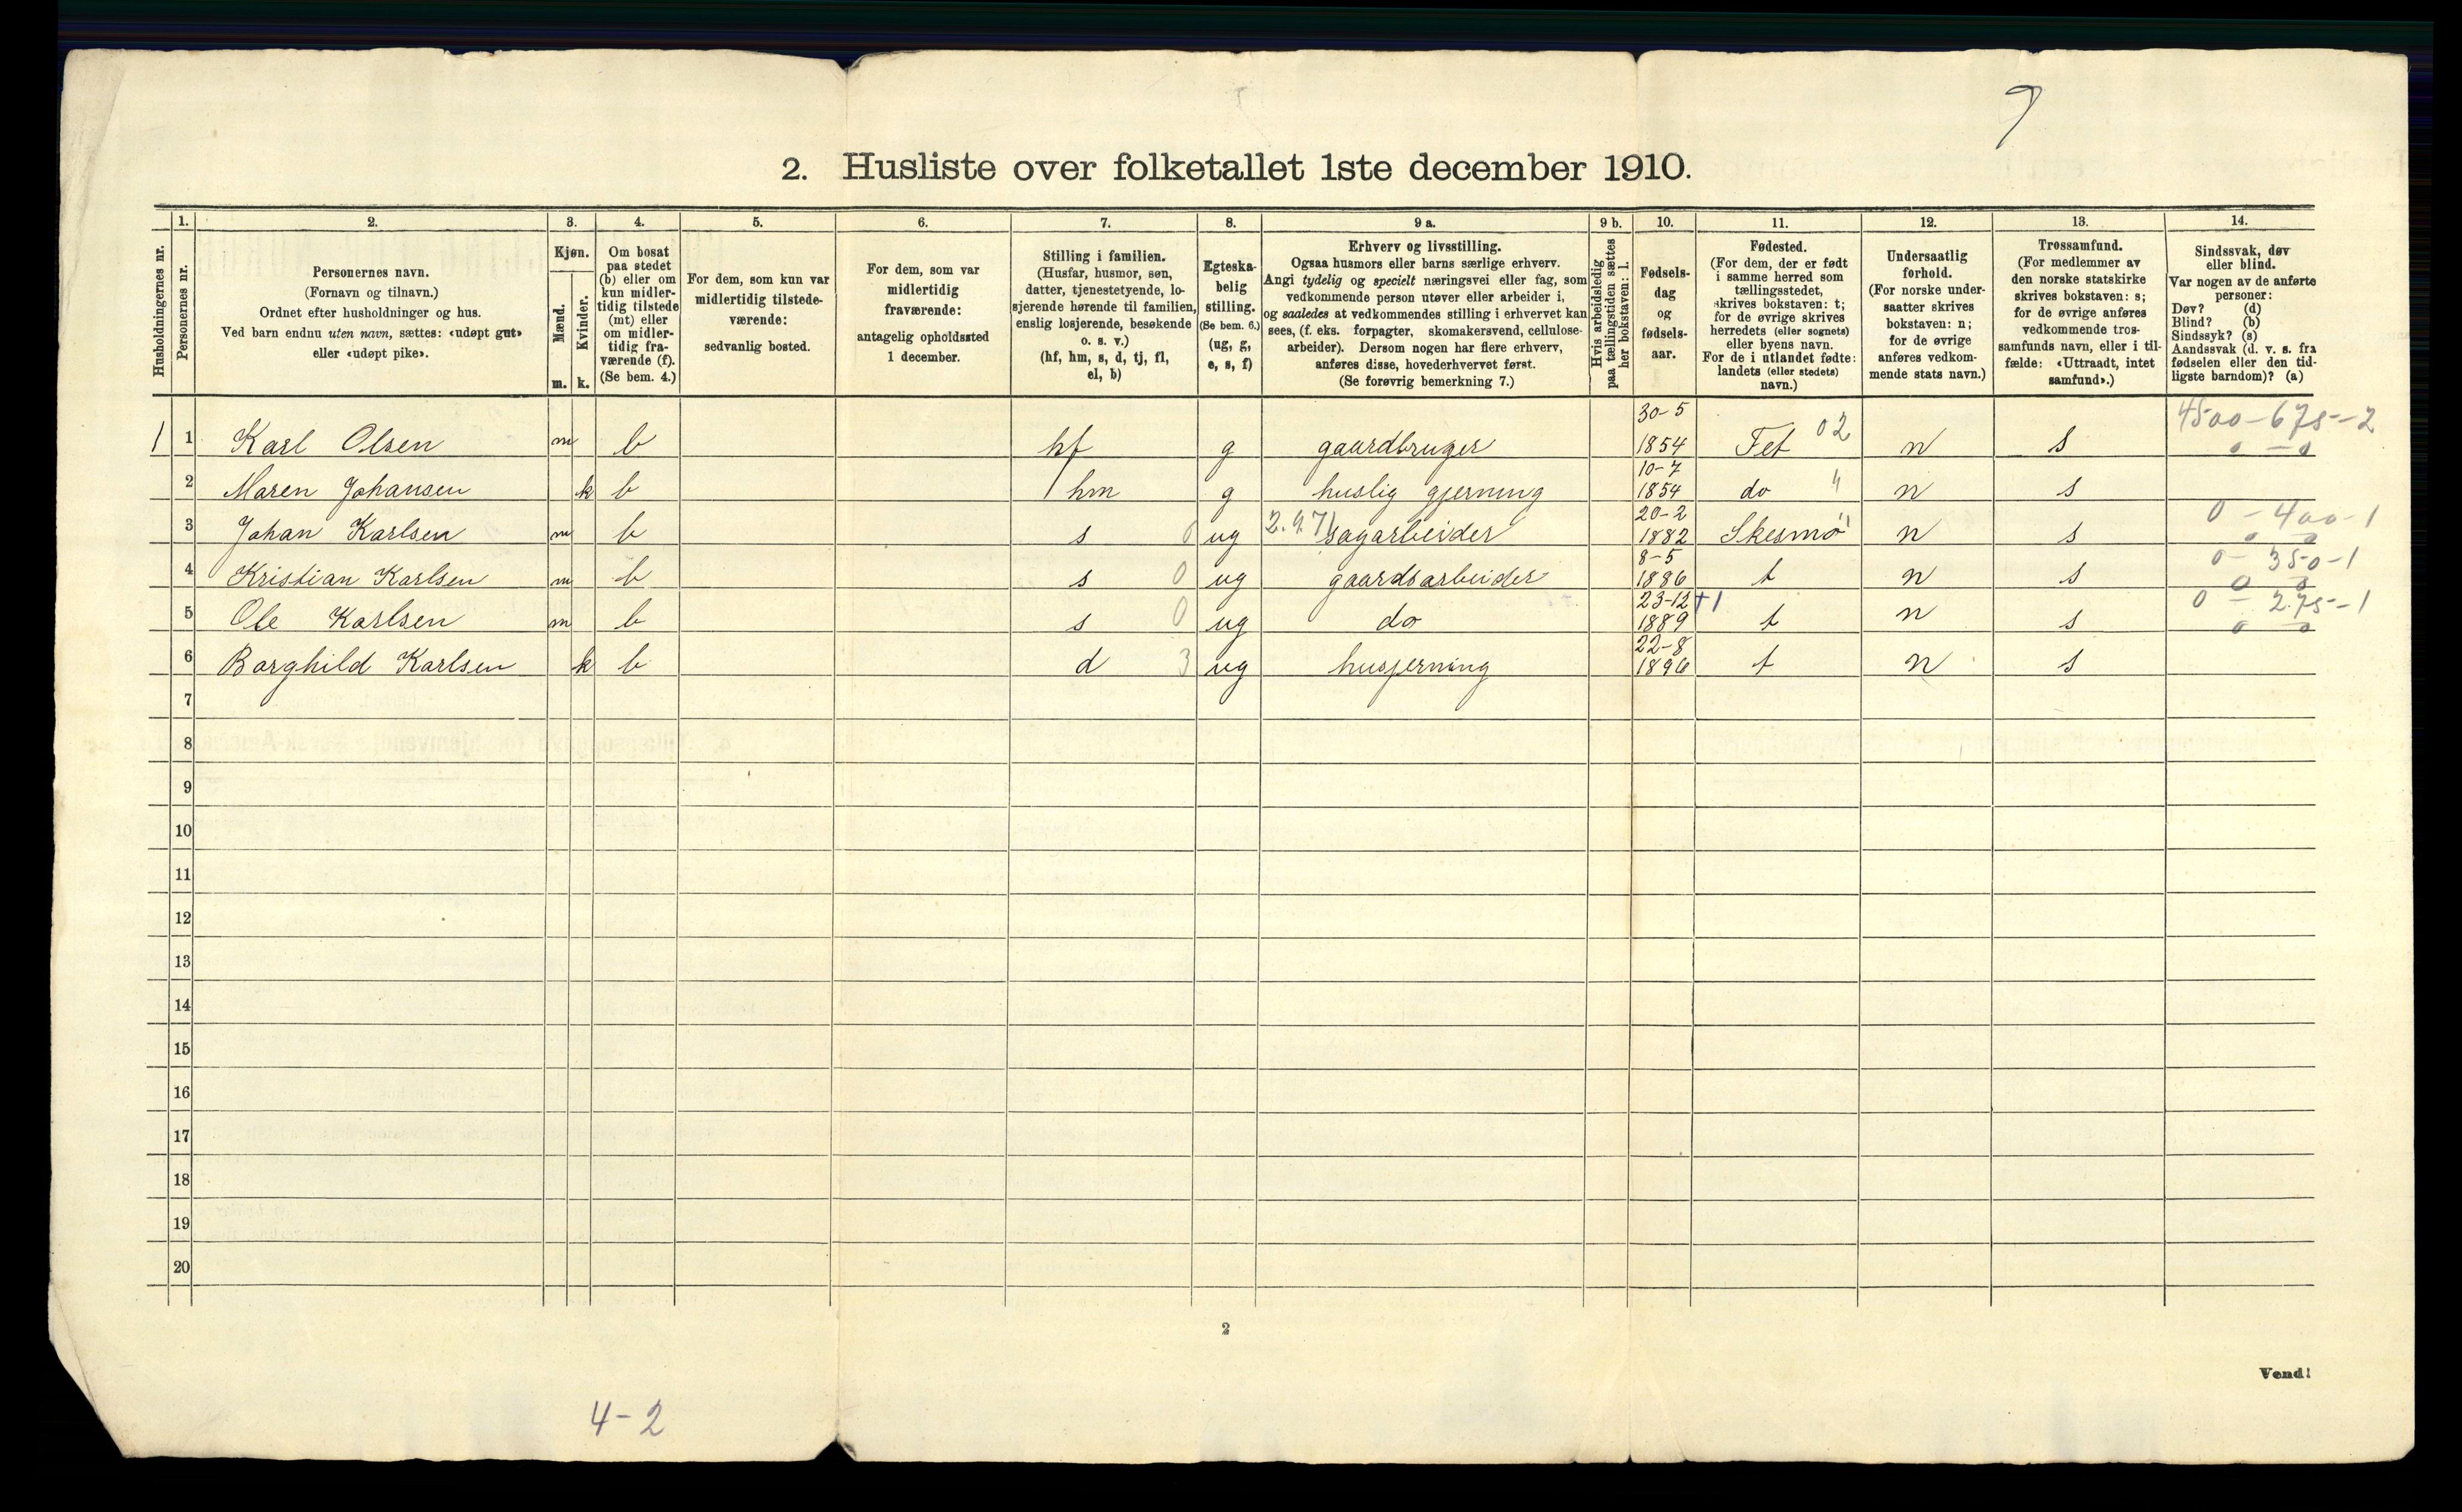 7
2. Husliste over folketallet 1ste december 1910.
Husholdningernes nr.
1.
Personernes nr.
2.
Personernes navn.
(Fornavn og tilnavn.)
Ordnet efter husholdninger og hus.
Ved barn endnu uten navn, sættes: «udøpt gut»
eller «udøpt pike».
3.
Kjøn.
Mænd.
Kvinder.
m. k.
4.
Om bosat
paa stedet
(b) eller om
kun midler-
tidig tilstede
(mt) eller
om midler-
tidig fra-
værende (f).
(Se bem. 4.)
5.
For dem, som kun var
midlertidig tilstede-
værende:
sedvanlig bosted.
6.
For dem, som var
midlertidig
fraværende:
antagelig opholdssted
1 december.
7.
Stilling i familien.
(Husfar, husmor, søn,
datter, tjenestetyende, lo-
sjerende hørende til familien,
enslig losjerende, besøkende
o. s. v.)
(hf, hm, s, d, tj, fl,
el, b)
8.
Egteska-
belig
stilling.
(Se bem. 6.)
(ug, g,
e, s, f)
9 a.
Erhverv og livsstilling.
Ogsaa husmors eller barns særlige erhverv.
Angi tydelig og specielt næringsvei eller fag, som
vedkommende person utøver eller arbeider i,
og saaledes at vedkommendes stilling i erhvervet kan
sees, (f. eks. forpagter, skomakersvend, cellulose-
arbeider). Dersom nogen har flere erhverv,
anføres disse, hovederhvervet først.
(Se forøvrig bemerkning 7.)
9 b.
Hvis arbeidsledig
paa tællingstiden sættes
her bokstaven: l.
10.
Fødsels-
dag
og
fødsels-
aar.
11.
Fødested.
(For dem, der er født
i samme herred som
tællingsstedet,
skrives bokstaven: t;
for de øvrige skrives
herredets (eller sognets)
eller byens navn.
For de i utlandet fødte:
landets (eller stedets)
navn.)
12.
Undersaatlig
forhold.
(For norske under-
saatter skrives
bokstaven: n;
for de øvrige
anføres vedkom-
mende stats navn.)
13.
Trossamfund.
(For medlemmer av
den norske statskirke
skrives bokstaven: s;
for de øvrige anføres
vedkommende tros-
samfunds navn, eller i til-
fælde: «Uttraadt, intet
samfund».)
14.
Sindssvak, døv
eller blind.
Var nogen av de anførte
personer:
Døv? (d)
Blind? (b)
Sindssyk? (s)
Aandssvak (d. v. s. fra
fødselen eller den tid-
ligste barndom)? (a)
1 1 Karl Olsen m b hf g gaardbruger 30-5 1854 Fet 02 n s 4500-675-2 0-0
2 Maren Johansen k b hm g huslig gjerning 10-7 1854 do " n s
3 Johan Karlsen m b s 0 ug sagarbeider 20-2 1882 Skesmo " n s 0-400-1 0 0
4 Kristian Karlsen m b s 0 ug gaardsarbeider 8-5 1886 t n s 0-350-1 0 0
5 Ole Karlsen m b s 0 ug do 23-12 +1 1889 t n s 0-275-1 0 0
6 Borghild Karlsen k b d 3 ug husjerning 22-8 1896 t n s
7
8
9
10
11
12
13
14
15
16
17
18
19
20
2
Vend!
4-2